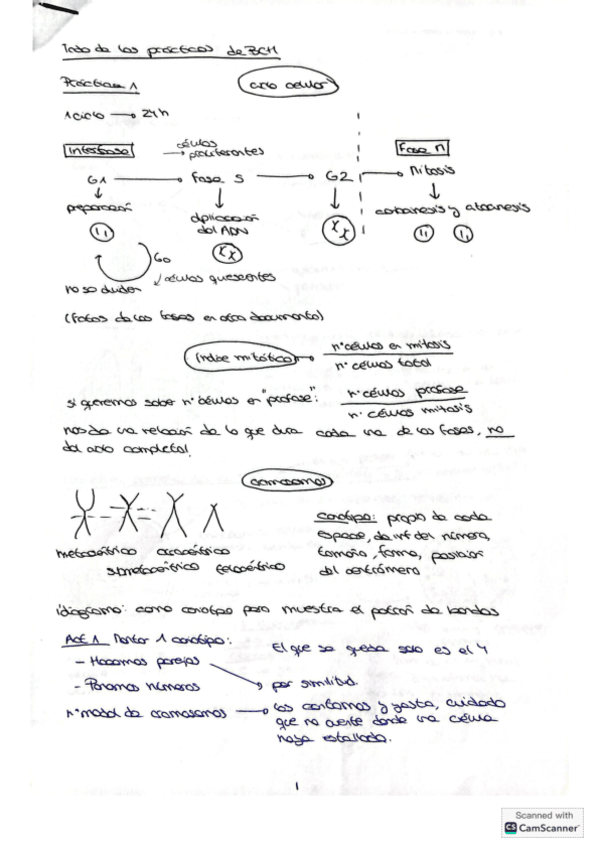 Todo de las prácticas de BCM
Práctica 1
ciclo celular
1 ciclo → 24h
Interfase
células proliferantes
Fase M
G1 → Fase S → G2 → Mitosis
preparación
duplicación del ADN
cariocinesis y citocinesis
G0
no se dividen
células quiescentes
(Fotos de las fases en otro documento)
Índice mitótico → nº células en mitosis
nº células total
si queremos saber nº células en "profase": nº células profase
nº células mitosis
nos da una relación de lo que dura cada una de las fases, no
del ciclo completo!
cromosomas
metacéntrico acrocéntrico
submetacéntrico telocéntrico
cariotipo: propio de cada
especie, da inf del número,
tamaño, forma, posición
del centrómero
idiograma: como cariotipo pero muestra el patrón de bandas
Act 1 Montar 1 cariotipo:
El que se queda solo es el Y
- Hacemos parejas
- Ponemos números
por similitud.
nº modal de cromosomas → los contamos y ya sta, cuidado
que no cuente donde una célula
haya estallado.
1
Scanned with
CS CamScanner